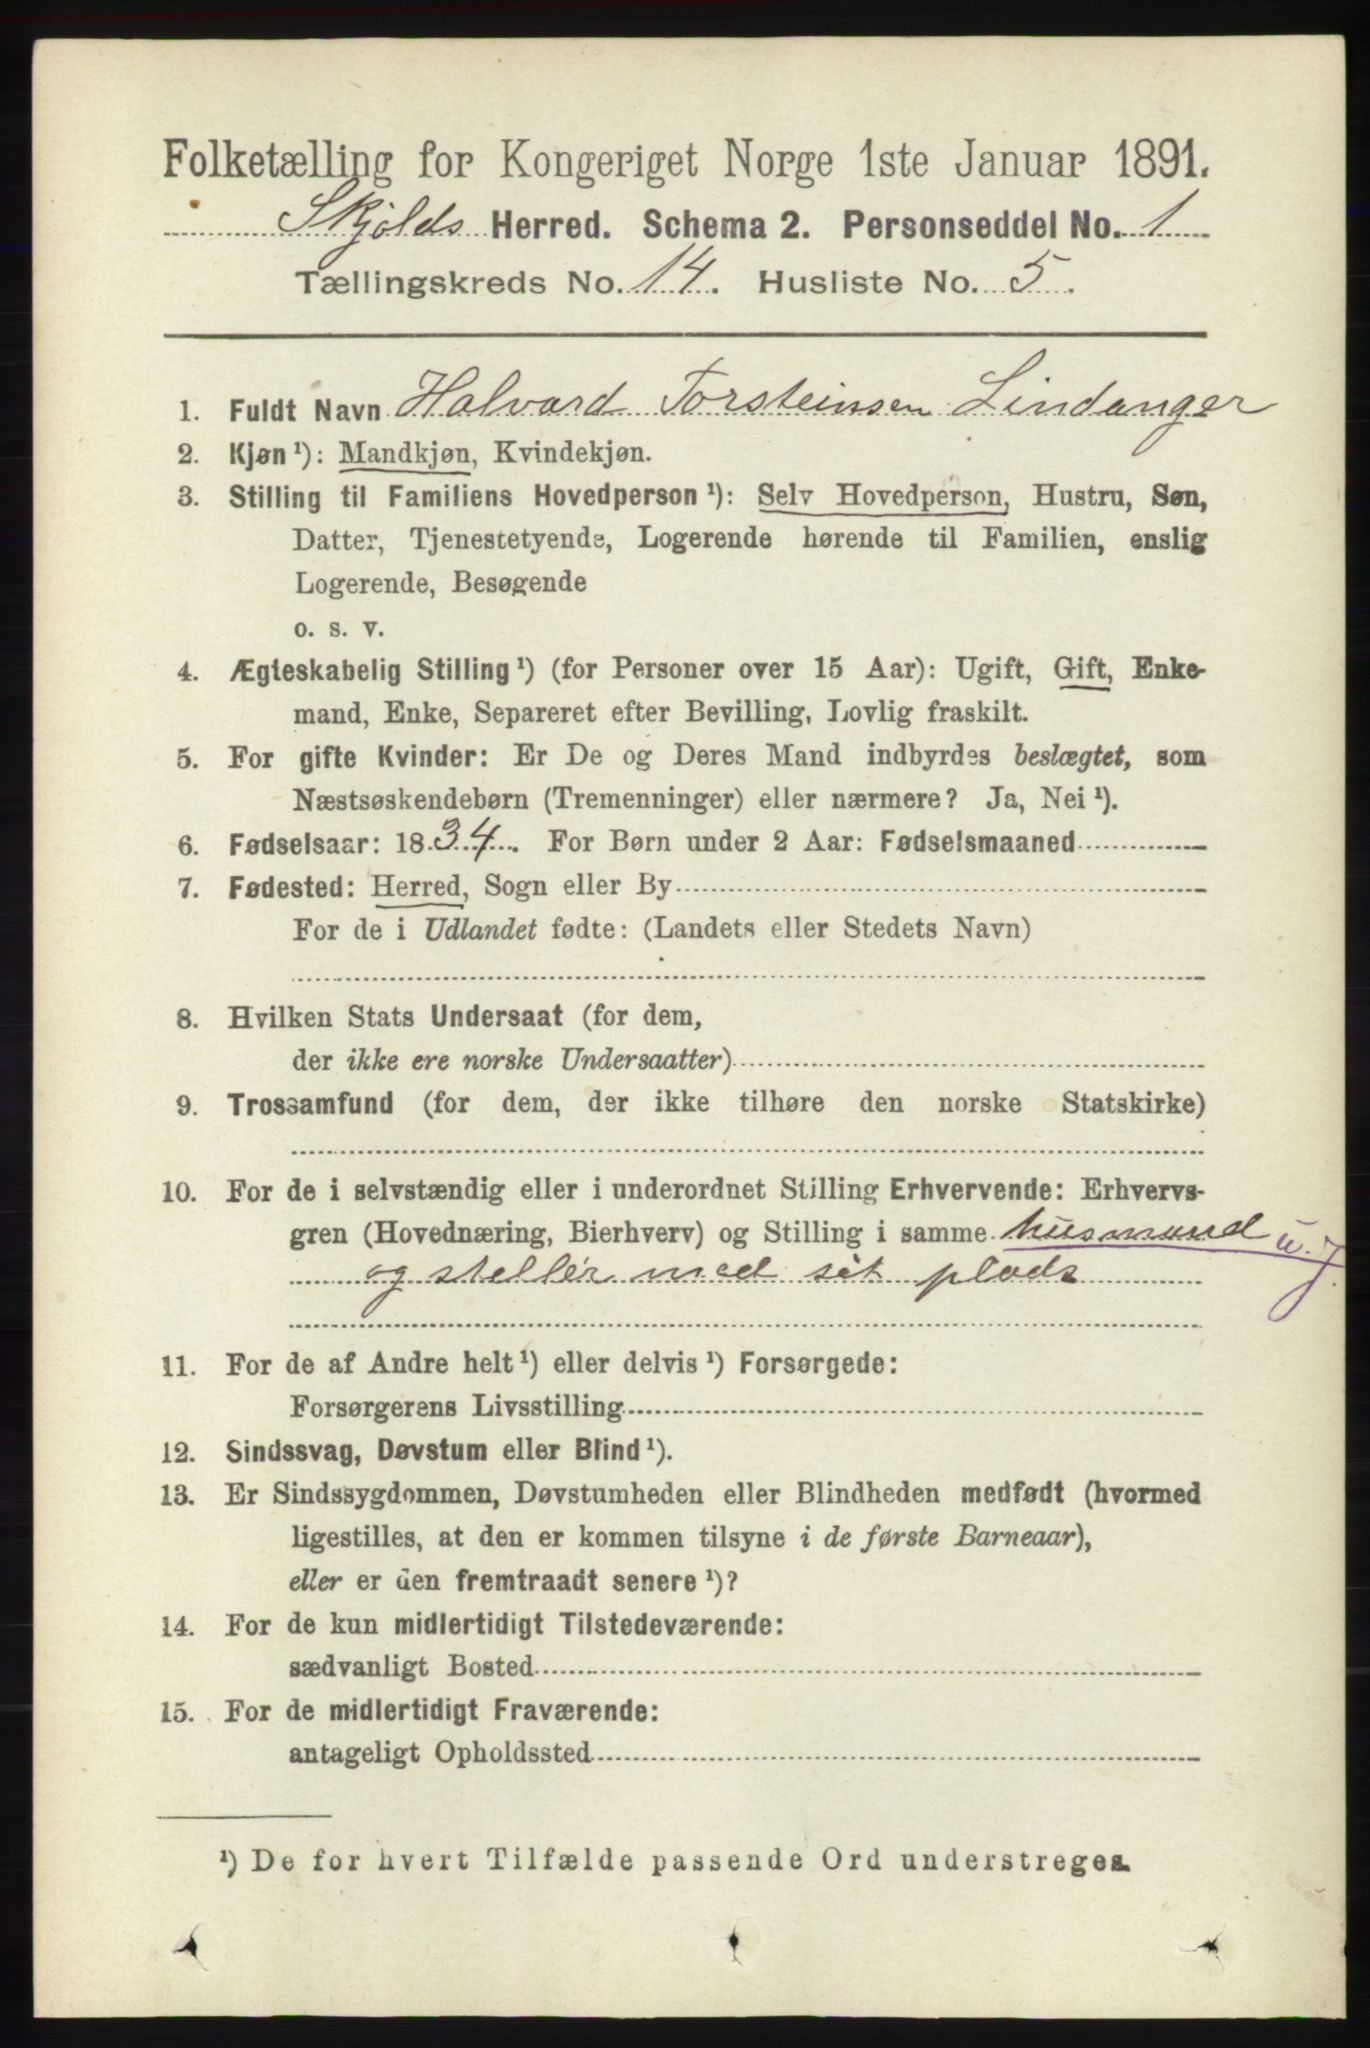 Folketælling for Kongeriget Norge 1ste Januar 1891.
Skjolds Herred. Schema 2. Personseddel No. 1
Tællingskreds No. 14. Husliste No. 5.
1. Fuldt Navn Halvard Torsteinsen Lindanger
2. Kjøn ¹): Mandkjøn, Kvindekjøn.
3. Stilling til Familiens Hovedperson ¹): Selv Hovedperson, Hustru, Søn,
Datter, Tjenestetyende, Logerende hørende til Familien, enslig
Logerende, Besøgende
o. s. v.
4. Ægteskabelig Stilling ¹) (for Personer over 15 Aar): Ugift, Gift, Enke-
mand, Enke, Separeret efter Bevilling, Lovlig fraskilt.
5. For gifte Kvinder: Er De og Deres Mand indbyrdes beslægtet, som
Næstsøskendebørn (Tremenninger) eller nærmere? Ja, Nei ¹).
6. Fødselsaar: 1834. For Børn under 2 Aar: Fødselsmaaned
7. Fødested: Herred, Sogn eller By
For de i Udlandet fødte: (Landets eller Stedets Navn)
8. Hvilken Stats Undersaat (for dem,
der ikke ere norske Undersaatter)
9. Trossamfund (for dem, der ikke tilhøre den norske Statskirke)
10. For de i selvstændig eller i underordnet Stilling Erhvervende: Erhvervs-
gren (Hovednæring, Bierhverv) og Stilling i samme husmand u. J.
og steller med sit plads
11. For de af Andre helt ¹) eller delvis ¹) Forsørgede:
Forsørgerens Livsstilling
12. Sindssvag, Døvstum eller Blind ¹).
13. Er Sindssygdommen, Døvstumheden eller Blindheden medfødt (hvormed
ligestilles, at den er kommen tilsyne i de første Barneaar),
eller er den fremtraadt senere ¹)?
14. For de kun midlertidigt Tilstedeværende:
sædvanligt Bosted
15. For de midlertidigt Fraværende:
antageligt Opholdssted
¹) De for hvert Tilfælde passende Ord understreges.